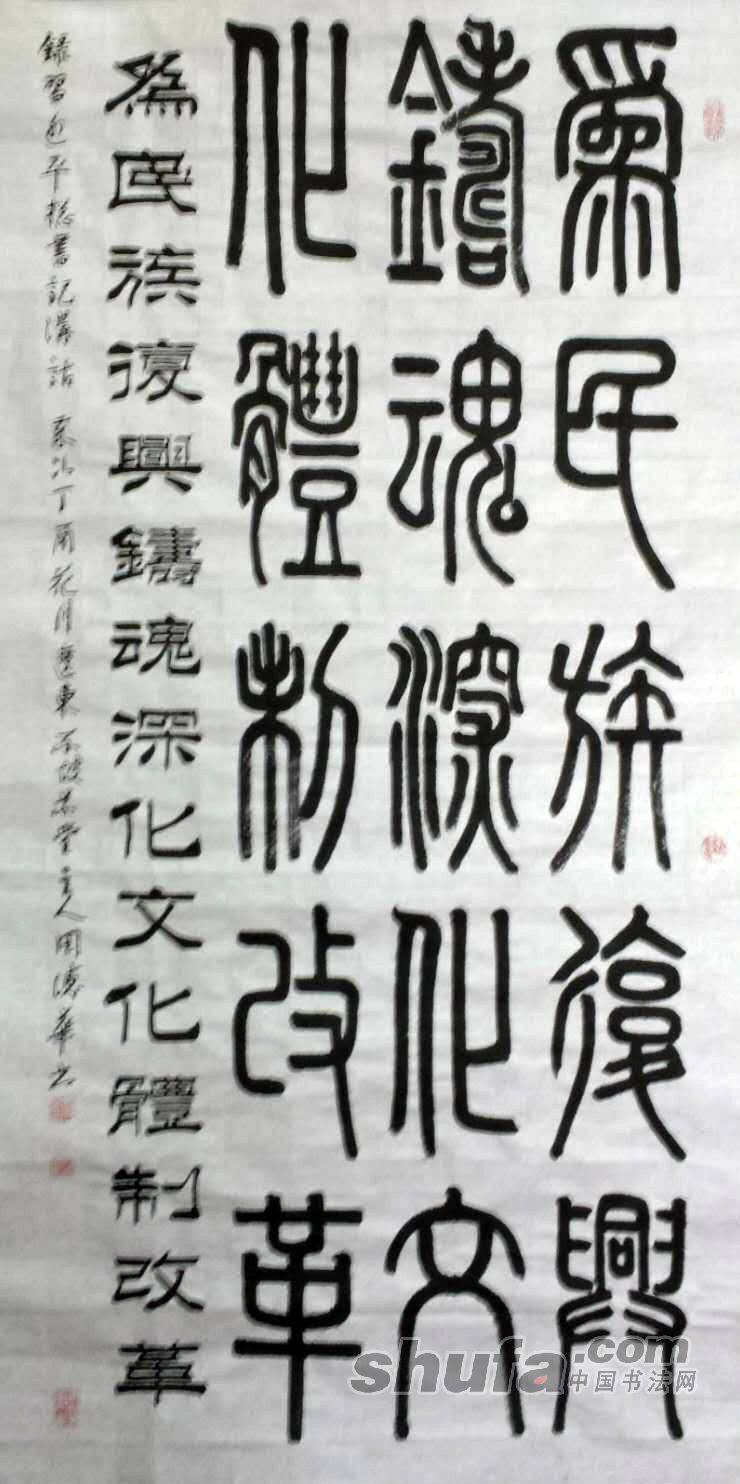 爲民族復興
鑄魂深化文
化體制改革
爲民族復興鑄魂深化文化體制改革
錄習近平總書記講話 丁酉花月 主人周德華书
shufa.com
中国书法网